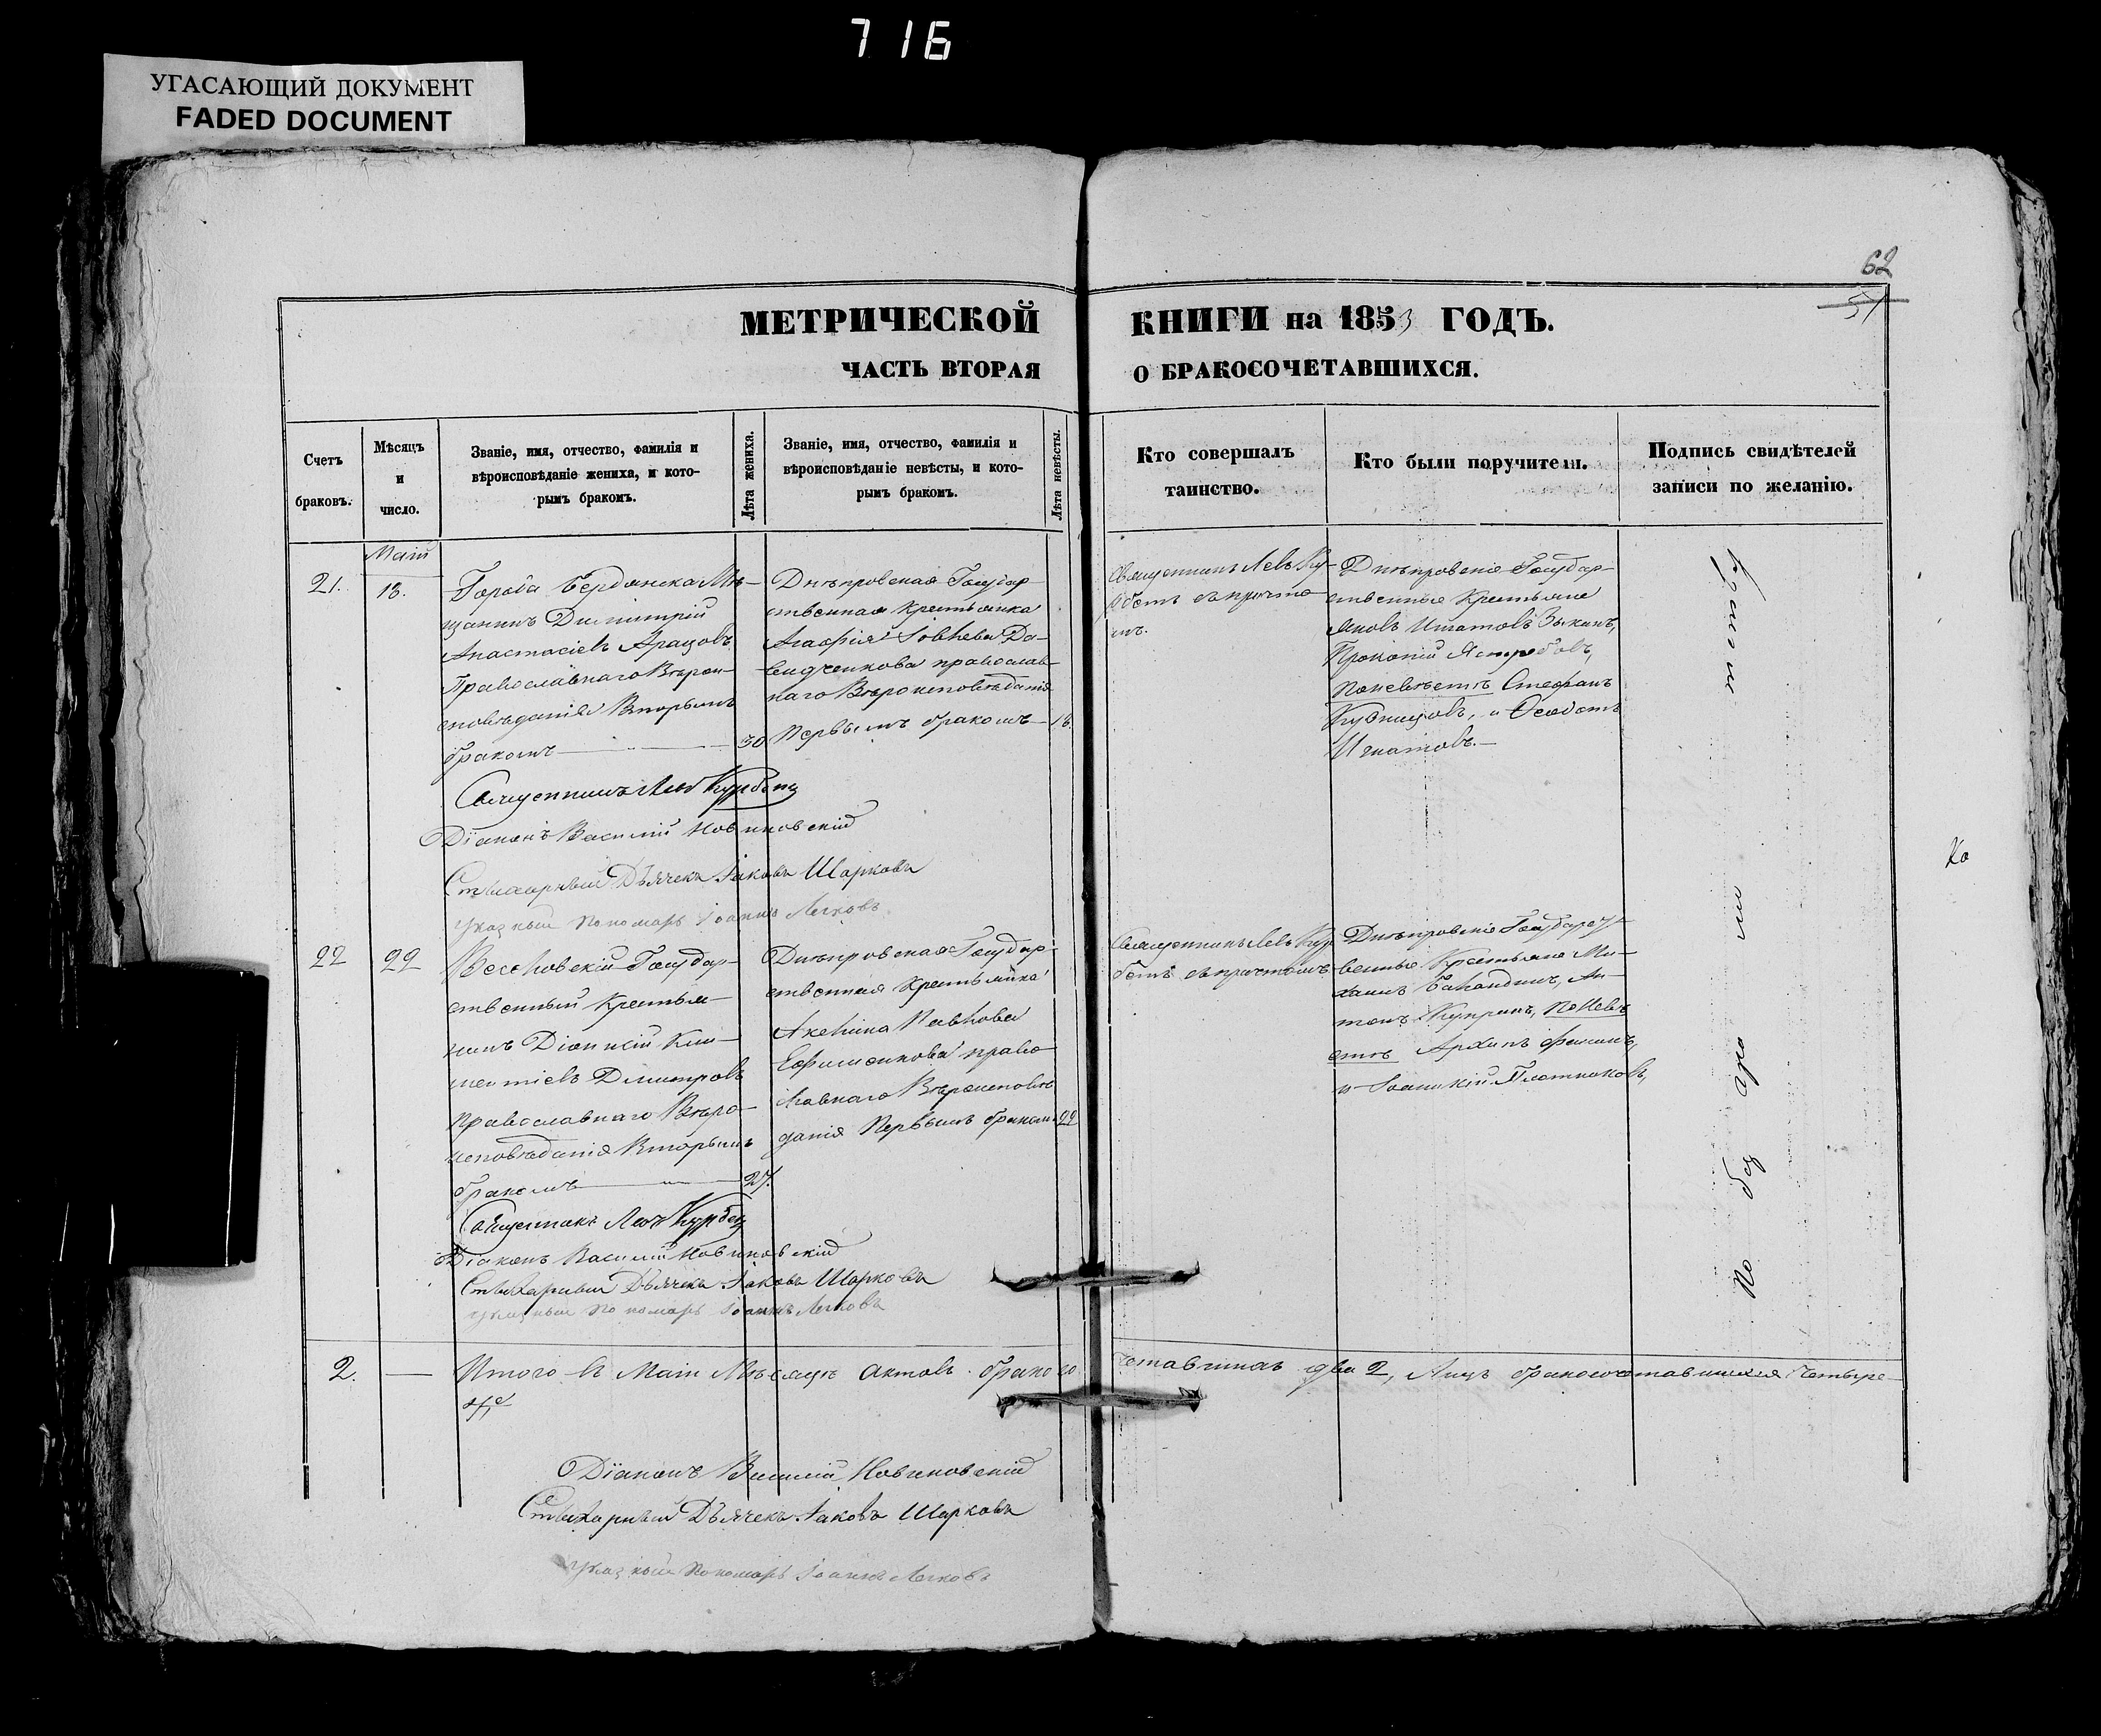 716
УГАСАЮЩИЙ ДОКУМЕНТ
FADED DOCUMENT
62
51
МЕТРИЧЕСКОЙ КНИГИ на 1853 ГОДЪ.
ЧАСТЬ ВТОРАЯ О БРАКОСОЧЕТАВШИХСЯ.
Счетъ
браковъ.
Мѣсяцъ
и
число.
Званіе, имя, отчество, фамилія и
вѣроисповѣданіе жениха, и кото-
рымъ бракомъ.
Лѣта жениха.
Званіе, имя, отчество, фамилія и
вѣроисповѣданіе невѣсты, и кото-
рымъ бракомъ.
Лѣта невѣсты.
Кто совершалъ
таинство.
Кто были поручители.
Подпись свидѣтелей
записи по желанію.
Маій
21.
13.
Города Бердянска Мѣ-
щанинъ Димитрій
Анастасіевъ
Православнаго Вѣрои-
сповѣданія Вторымъ
бракомъ
30
Днѣпровская Государ-
ственная Крестьянка
Агафія Іовлева Да-
видченкова православ-
наго Вѣроисповѣданія
Первымъ бракомъ
18.
Священникъ Левъ Ку-
рбетъ съ причто-
мъ.
Днѣпровскіе Государ-
ственные Крестьяне
Яковъ Игнатовъ Зыкинъ,
Прокопій Ястребовъ,
По невѣстѣ Стефанъ
Кузнецовъ, и Ѳеодотъ
Игнатовъ.
Священникъ Левъ Курбетъ
Діаконъ Василій Новиковскій
Стихарный Дьячекъ Іаковъ Шарковъ
Указный Пономарь Іоаннъ Легковъ
22
22
Веселовскій Государ-
ственный Крестья-
нинъ Діонисій Кли-
ментіевъ Димитровъ
Православнаго Вѣро-
исповѣданія Вторымъ
бракомъ
27.
Днѣпровская Государ-
ственная Крестьянка
Акелина Павлова
Ефименкова право-
славнаго Вѣроисповѣ-
данія Первымъ бракомъ
22
Священникъ Левъ Кур-
бетъ съ причтомъ
Днѣпровскіе Государст-
венные Крестьяне Ми-
хаилъ Баландинъ, Ан-
тонъ Купринъ, По Невѣ-
стѣ Архипъ
и Іоанникій Плотниковъ,
Священникъ Левъ Курбетъ
Діаконъ Василій Новиковскій
Стихарный Дьячекъ Іаковъ Шарковъ
Указный Пономарь Іоаннъ Легковъ
2.
Итого въ Маіи Мѣсяцѣ актовъ бракосо-
четавшихся два 2, Лицъ бракосочетавшихся Четыре
4,е
Діаконъ Василій Новиковскій
Стихарный Дьячекъ Іаковъ Шарковъ
Указный Пономарь Іоаннъ Легковъ
По
Ко